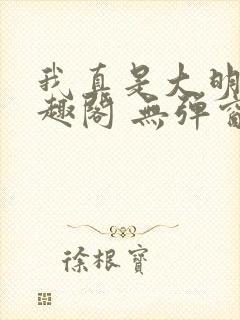 我真是大明
趣閣 無彈窗
徐根寶